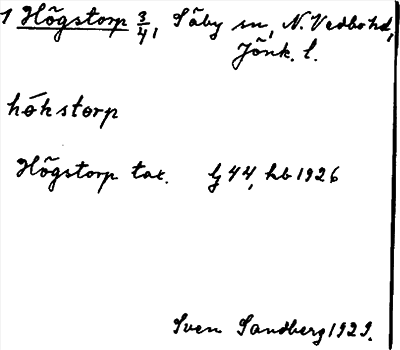 1 Högstorp 3/4, Säby sn, N. Vedbo hd,
Jönk. l.
hökstorp
Högstorp tax. lj 44, hb 1926
Sven Sandberg 1929.